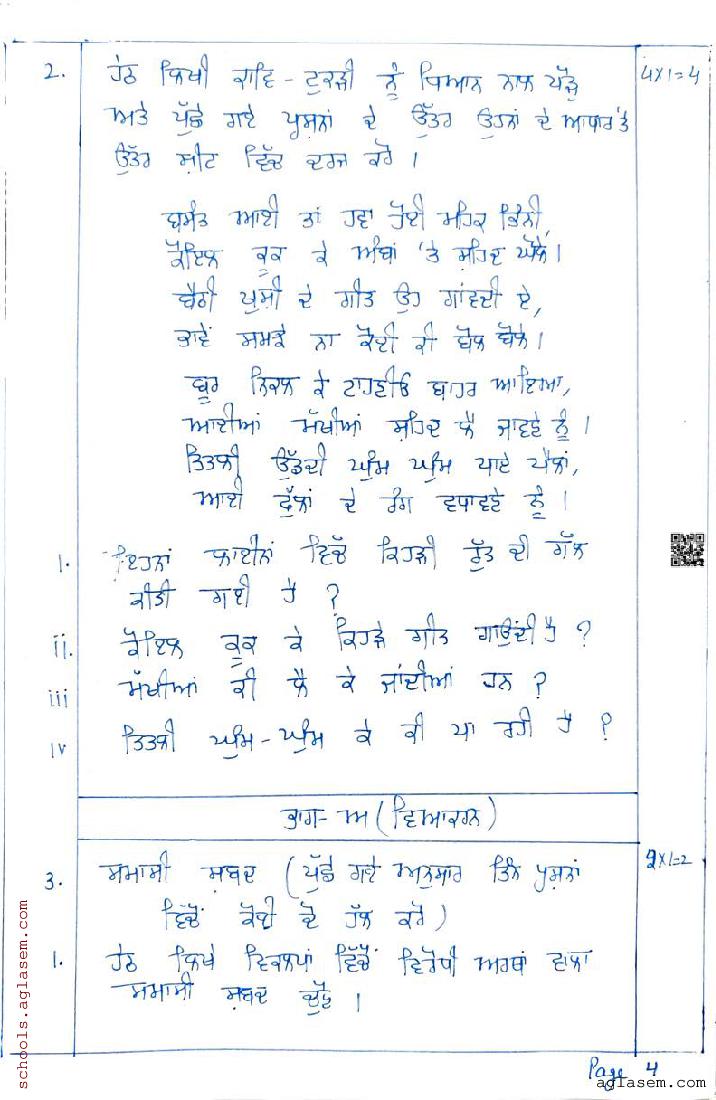 2. ਹੇਠ ਲਿਖੀ ਕਾਵਿ - ਟੁਕੜੀ ਨੂੰ ਧਿਆਨ ਨਾਲ ਪੜ੍ਹੋ 4x1=4
ਅਤੇ ਪੁੱਛੇ ਗਏ ਪ੍ਰਸ਼ਨਾਂ ਦੇ ਉੱਤਰ ਉਹਨਾਂ ਦੇ ਆਧਾਰ 'ਤੇ
ਉੱਤਰ ਸ਼ੀਟ ਵਿੱਚ ਦਰਜ ਕਰੋ ।
ਬਸੰਤ ਆਈ ਤਾਂ ਹਵਾ ਹੋਈ ਮਹਿਕ ਭਿੰਨੀ,
ਕੋਇਲ ਕੂਕ ਕੇ ਅੰਬਾਂ 'ਤੇ ਸ਼ਹਿਦ ਘੋਲੇ।
ਬੈਠੀ ਖੁਸ਼ੀ ਦੇ ਗੀਤ ਉਹ ਗਾਂਵਦੀ ਏ,
ਭਾਵੇਂ ਸਮਝੇ ਨਾ ਕੋਈ ਕੀ ਬੋਲ ਬੋਲੇ।
ਬੂਰ ਨਿਕਲ ਕੇ ਟਾਹਣੀਓਂ ਬਾਹਰ ਆਇਆ,
ਆਈਆਂ ਮੱਖੀਆਂ ਸ਼ਹਿਦ ਲੈ ਜਾਵਣੇ ਨੂੰ ।
ਤਿਤਲੀ ਉੱਡਦੀ ਘੁੰਮ ਘੁੰਮ ਪਾਏ ਪੈਲਾਂ,
ਆਈ ਫੁੱਲਾਂ ਦੇ ਰੰਗ ਵਧਾਵਣੇ ਨੂੰ ।
i. ਇਹਨਾਂ ਲਾਈਨਾਂ ਵਿੱਚ ਕਿਹੜੀ ਰੁੱਤ ਦੀ ਗੱਲ
ਕੀਤੀ ਗਈ ਹੈ ?
ii. ਕੋਇਲ ਕੂਕ ਕੇ ਕਿਹੜੇ ਗੀਤ ਗਾਉਂਦੀ ਹੈ ?
iii ਮੱਖੀਆਂ ਕੀ ਲੈ ਕੇ ਜਾਂਦੀਆਂ ਹਨ ?
iv ਤਿਤਲੀ ਘੁੰਮ-ਘੁੰਮ ਕੇ ਕੀ ਪਾ ਰਹੀ ਹੈ ?
ਭਾਗ- ਅ (ਵਿਆਕਰਨ)
3. ਸਮਾਸੀ ਸ਼ਬਦ (ਪੁੱਛੇ ਗਏ ਅਨੁਸਾਰ ਤਿੰਨ ਪ੍ਰਸ਼ਨਾਂ 2x1=2
ਵਿੱਚੋਂ ਕੋਈ ਦੋ ਹੱਲ ਕਰੋ)
i. ਹੇਠ ਲਿਖੇ ਵਿਕਲਪਾਂ ਵਿੱਚੋਂ ਵਿਰੋਧੀ ਅਰਥਾਂ ਵਾਲਾ
ਸਮਾਸੀ ਸ਼ਬਦ ਚੁਣੋ ।
Page 4
schools.aglasem.com
aglasem.com